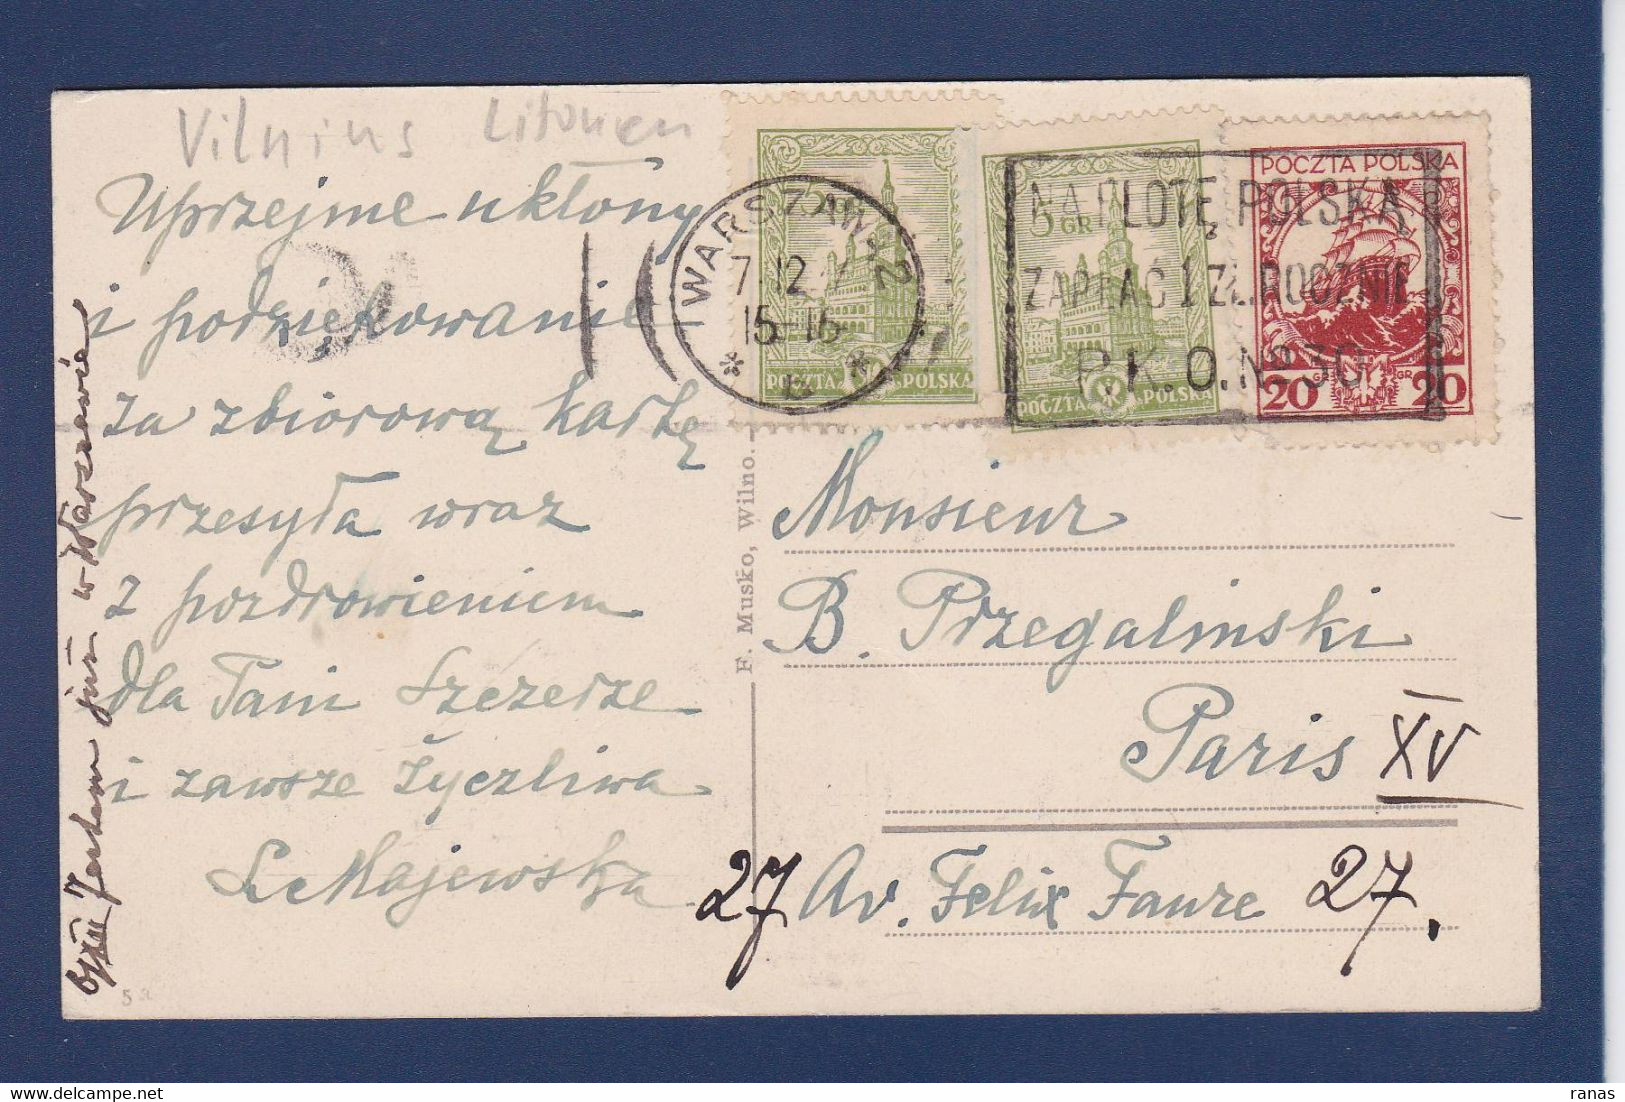 Vilnius Litouwen
Uprzejme ukłony
i podziękowanie
za zbiorową kartkę
przesyła wraz
z pozdrowieniem
dla Pani Szczerze
i zawsze życzliwa
L. Majewska
6/XII Jestem już w Warszawie
5
F. Musko, Wilno.
WARSZAWA 2
7.12
15-16
* b *
5
POCZTA POLSKA
5 GR
POCZTA POLSKA
POCZTA POLSKA
20 GR GR 20
NA FLOTĘ POLSKĄ
ZAPŁAĆ 1 ZŁ. ROCZNIE
P.K.O. № 30
Monsieur
B. Przegalinski
Paris XV
27 Av. Felix Faure 27.
ranas